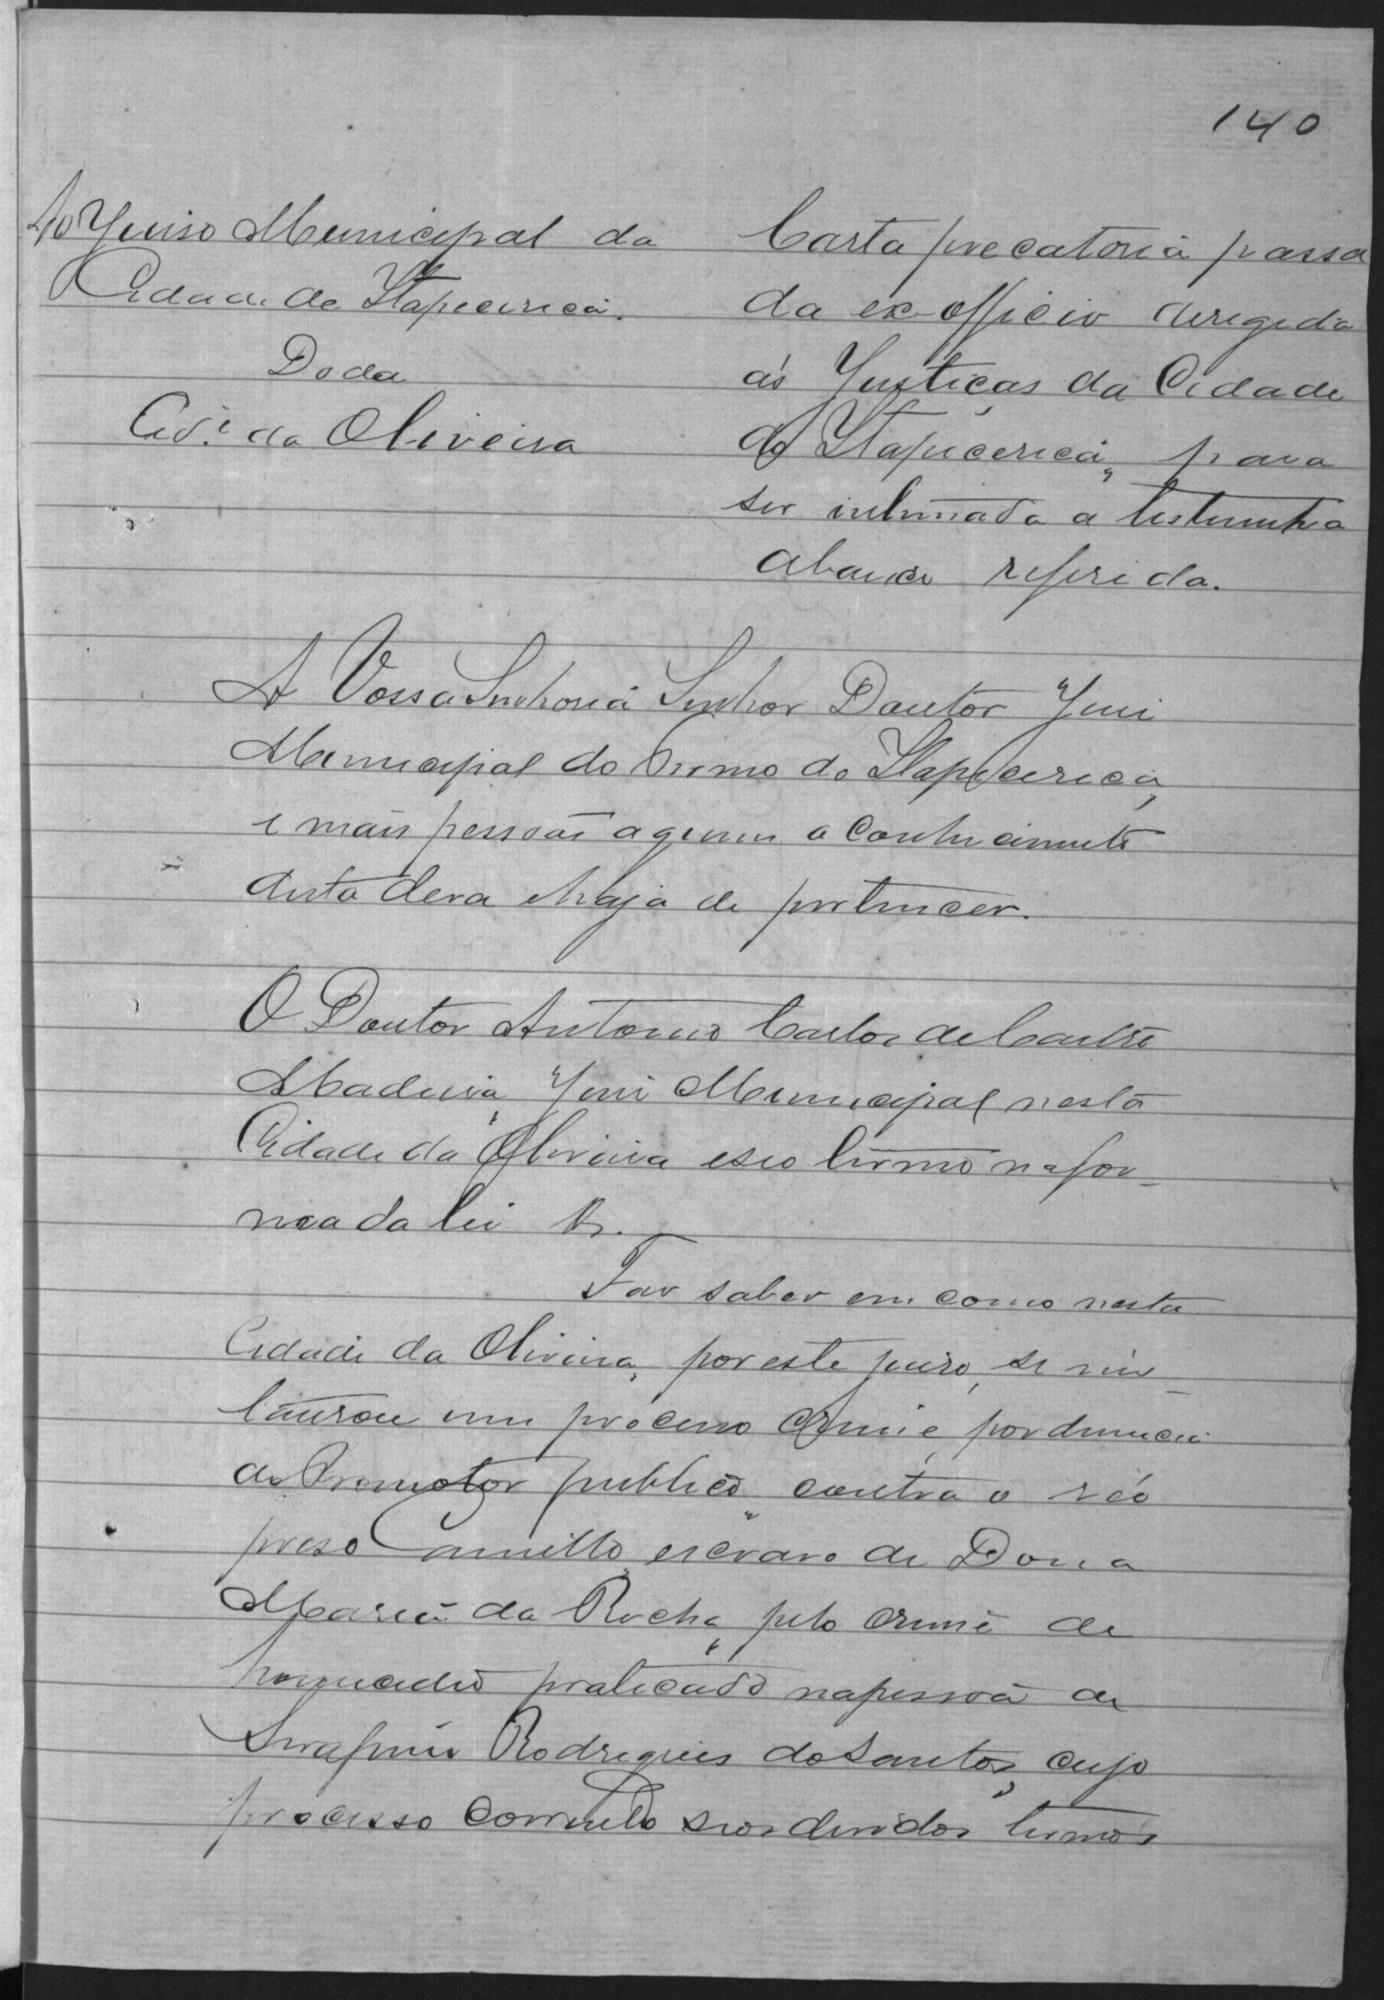 140
Ao Juiso Municipal da
Cidade de Itapecerica.
Do da
Cid.e da Oliveira
Carta precatoria passa
da ex-officio deregida
ás Justiças da Cidade
do Itapecerica, para
ser intimada a testemunha
abaixo referida.
A Vossa Senhoria Senhor Doutor Juiz
Municipal do Termo do Itapecerica,
e mais pessoas a quem o conhecimento
desta deva e haja de pertencer.
O Doutor Antonio Carlos de Castro
Madeira, Juiz Municipal nesta
Cidade da Oliveira e seo termo na for-
ma da lei &.
Faz saber em como nesta
Cidade da Oliveira, por este juiso, se ins-
taurou um processo crime, por denuncia
do Promotor publico, contra o réo
preso Camillo, escravo de Dona
Maria da Rocha, pelo crime de
homicidio praticado na pessoa de
Serafim Rodrigues do Santos, cujo
processo correndo seos devidos termos